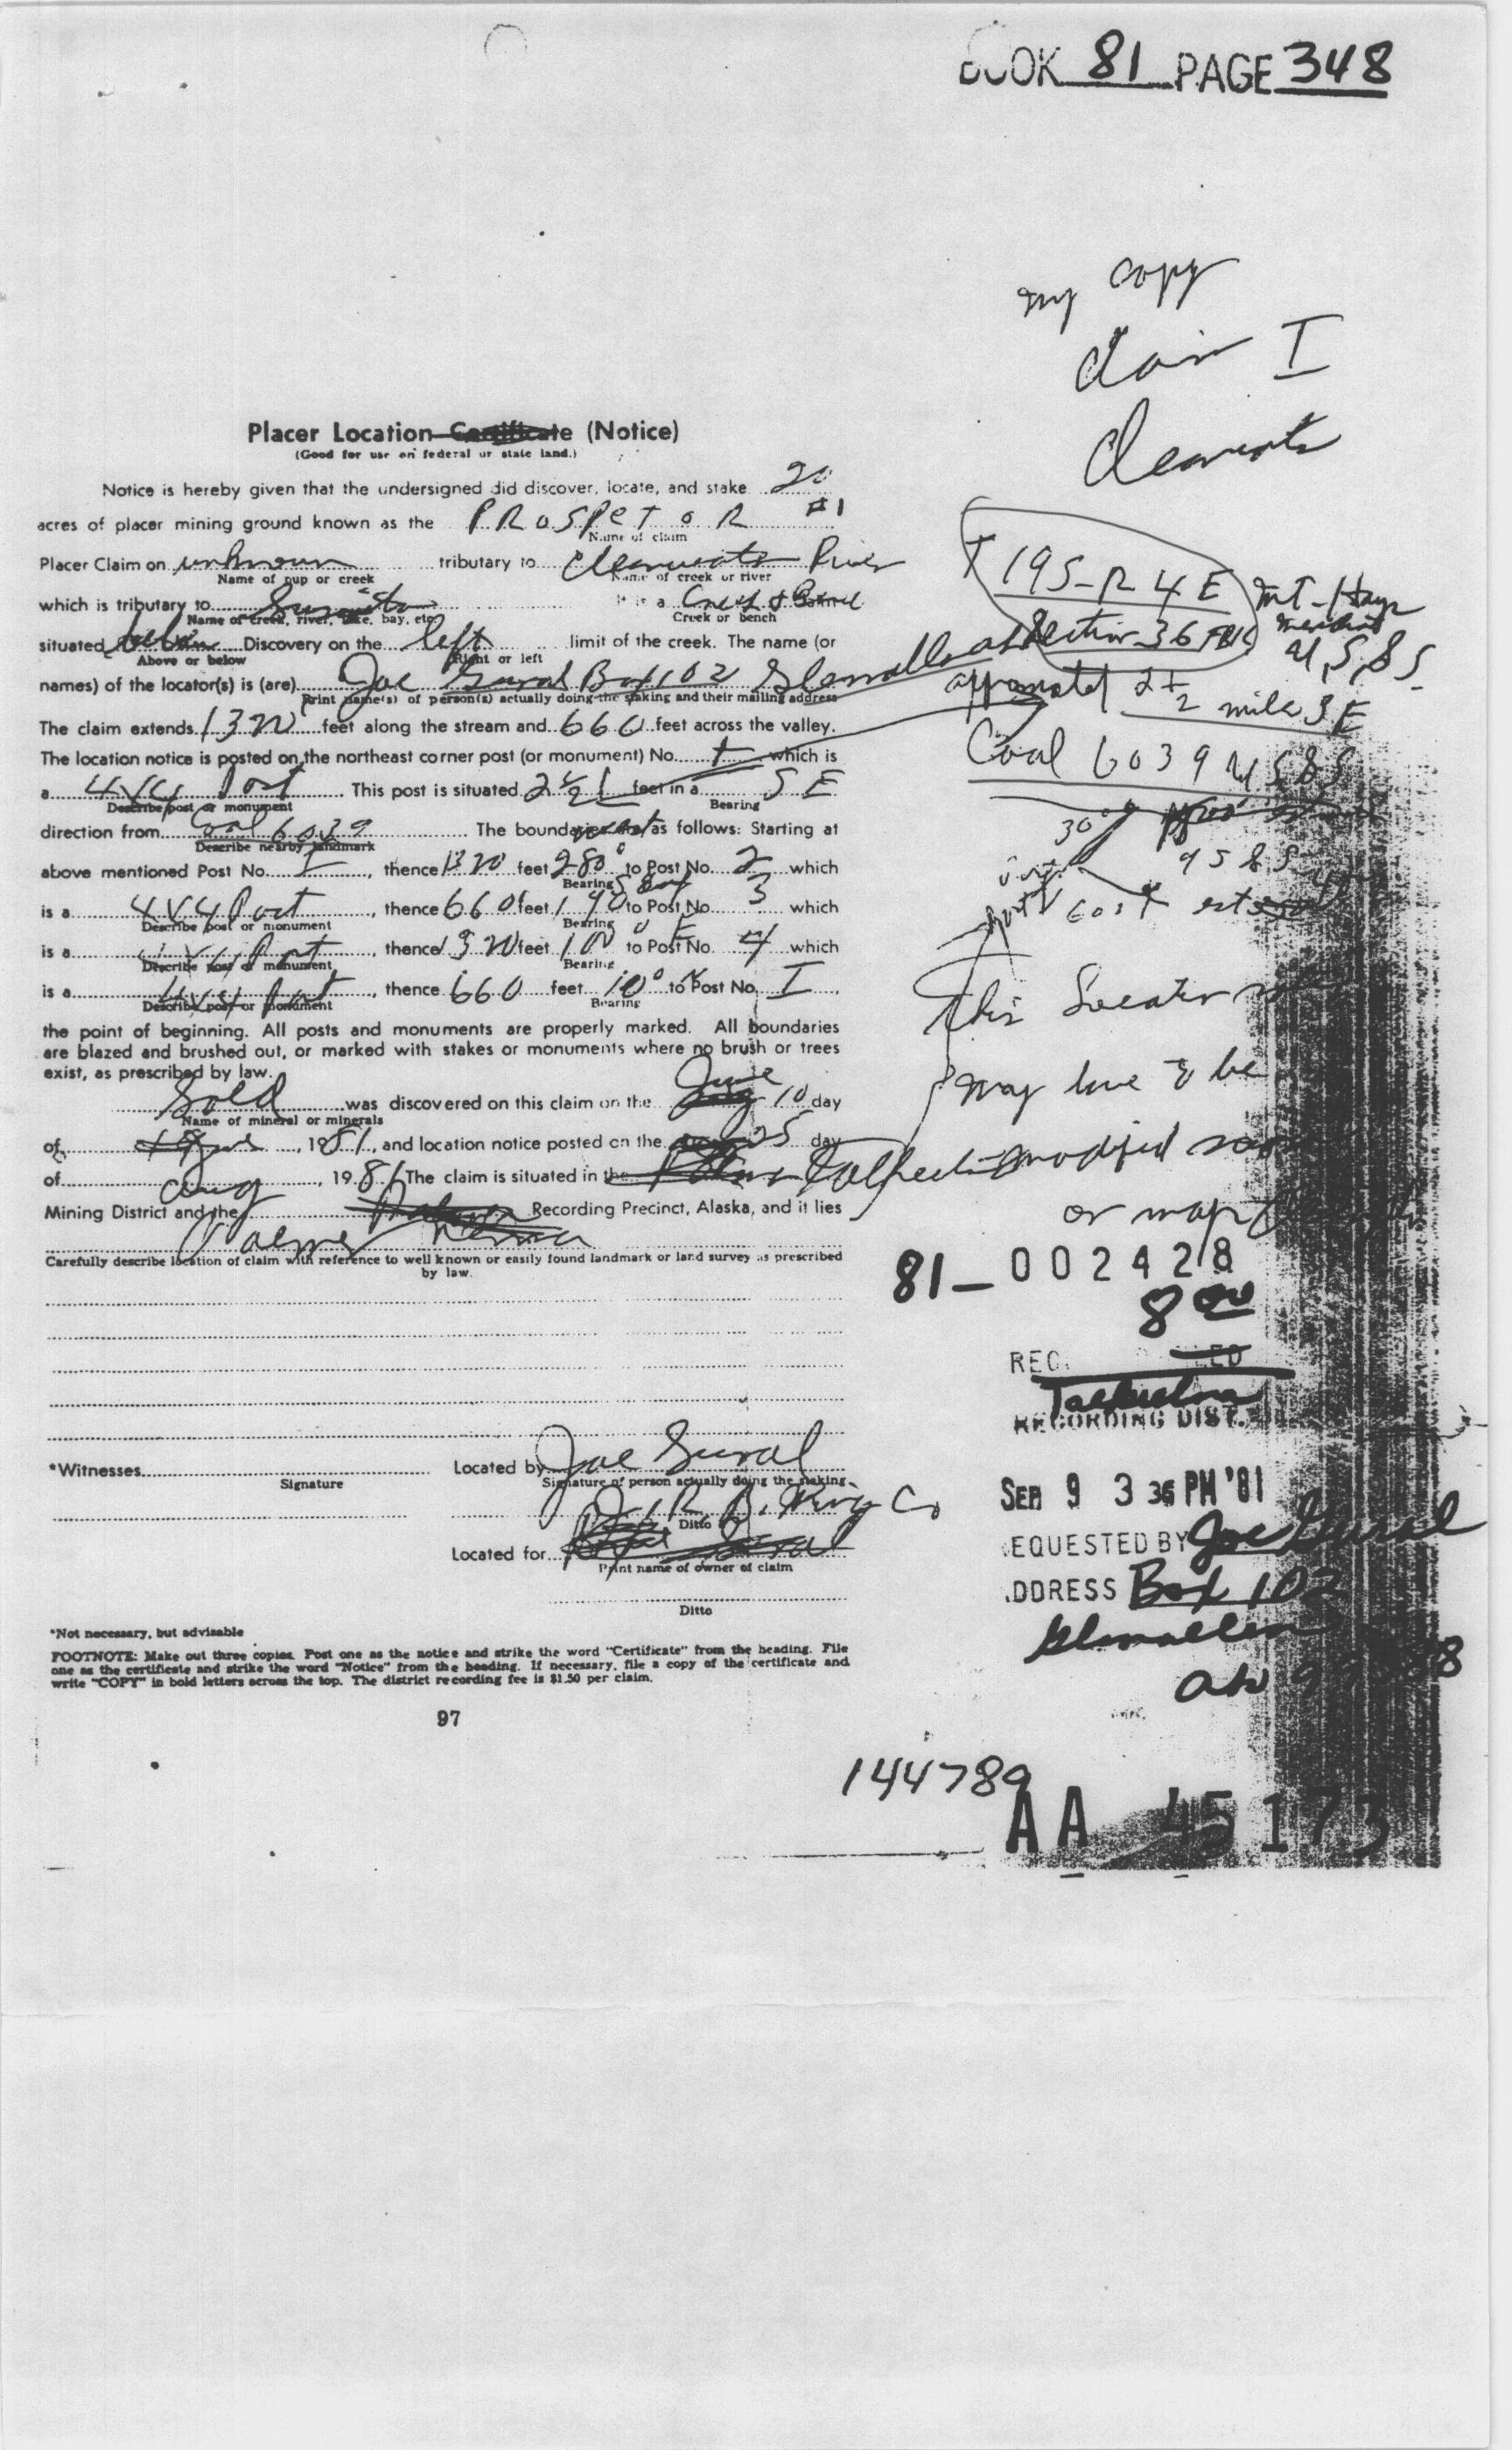 BOOK 81 PAGE 348
my copy
claim I
Placer Location Certificate (Notice)
(Good for use on federal or state land.)
Notice is hereby given that the undersigned did discover, locate, and stake 20
acres of placer mining ground known as the PROSPeToR #1
Name of claim
Placer Claim on unknown tributary to Clearwater River
Name of pup or creek Name of creek or river
which is tributary to
It is a Creek &
Name of creek, river, lake, bay, etc. Creek or bench
situated below Discovery on the left limit of the creek. The name (or
Above or below Right or left
names) of the locator(s) is (are) Joe Gural Box 102 Glennallen
Print name(s) of person(s) actually doing the staking and their mailing address
The claim extends 1320 feet along the stream and 660 feet across the valley.
The location notice is posted on the northeast corner post (or monument) No. which is
a 4x4 Post. This post is situated 2 1/2 feet in a SE
Describe post or monument Bearing
direction from Coal 6039 The boundaries are as follows: Starting at
Describe nearby landmark
above mentioned Post No. I, thence 1320 feet 280° to Post No. 2 which
Bearing
is a 4x4 Post, thence 660 feet 190 to Post No. 3 which
Describe post or monument Bearing
is a 4x4 Post, thence 1320 feet 100° to Post No. 4 which
Describe post or monument Bearing
is a 4x4 Post, thence 660 feet 10° to Post No. I,
Describe post or monument Bearing
the point of beginning. All posts and monuments are properly marked. All boundaries
are blazed and brushed out, or marked with stakes or monuments where no brush or trees
exist, as prescribed by law.
Gold was discovered on this claim on the June 10 day
Name of mineral or minerals
of 1981, and location notice posted on the 25 day
of Aug, 1981 The claim is situated in the
Mining District and the Recording Precinct, Alaska, and it lies
Palmer
Carefully describe location of claim with reference to well known or easily found landmark or land survey as prescribed
by law.
*Witnesses
Signature
Located by Joe Gural
Signature of person actually doing the staking
Ditto
Located for
Print name of owner of claim
Ditto
*Not necessary, but advisable
FOOTNOTE: Make out three copies. Post one as the notice and strike the word "Certificate" from the heading. File
one as the certificate and strike the word "Notice" from the heading. If necessary, file a copy of the certificate and
write "COPY" in bold letters across the top. The district recording fee is $1.50 per claim.
97
T 19S-R 4 E Mt-Hays
Section 36
mile SE
Coal 6039
This Locator
may have to be
modified
or map
81-002428
8 00
Talkeetna
RECORDING DIST.
SEP 9 3 36 PM '81
REQUESTED BY Joe Gural
ADDRESS Box 102
Glennallen
144789
AA 45173